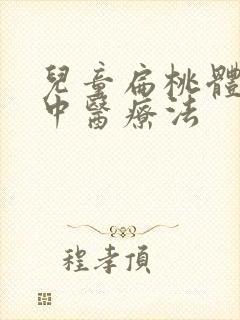 兒童扁桃體
中醫療法
程孝頂